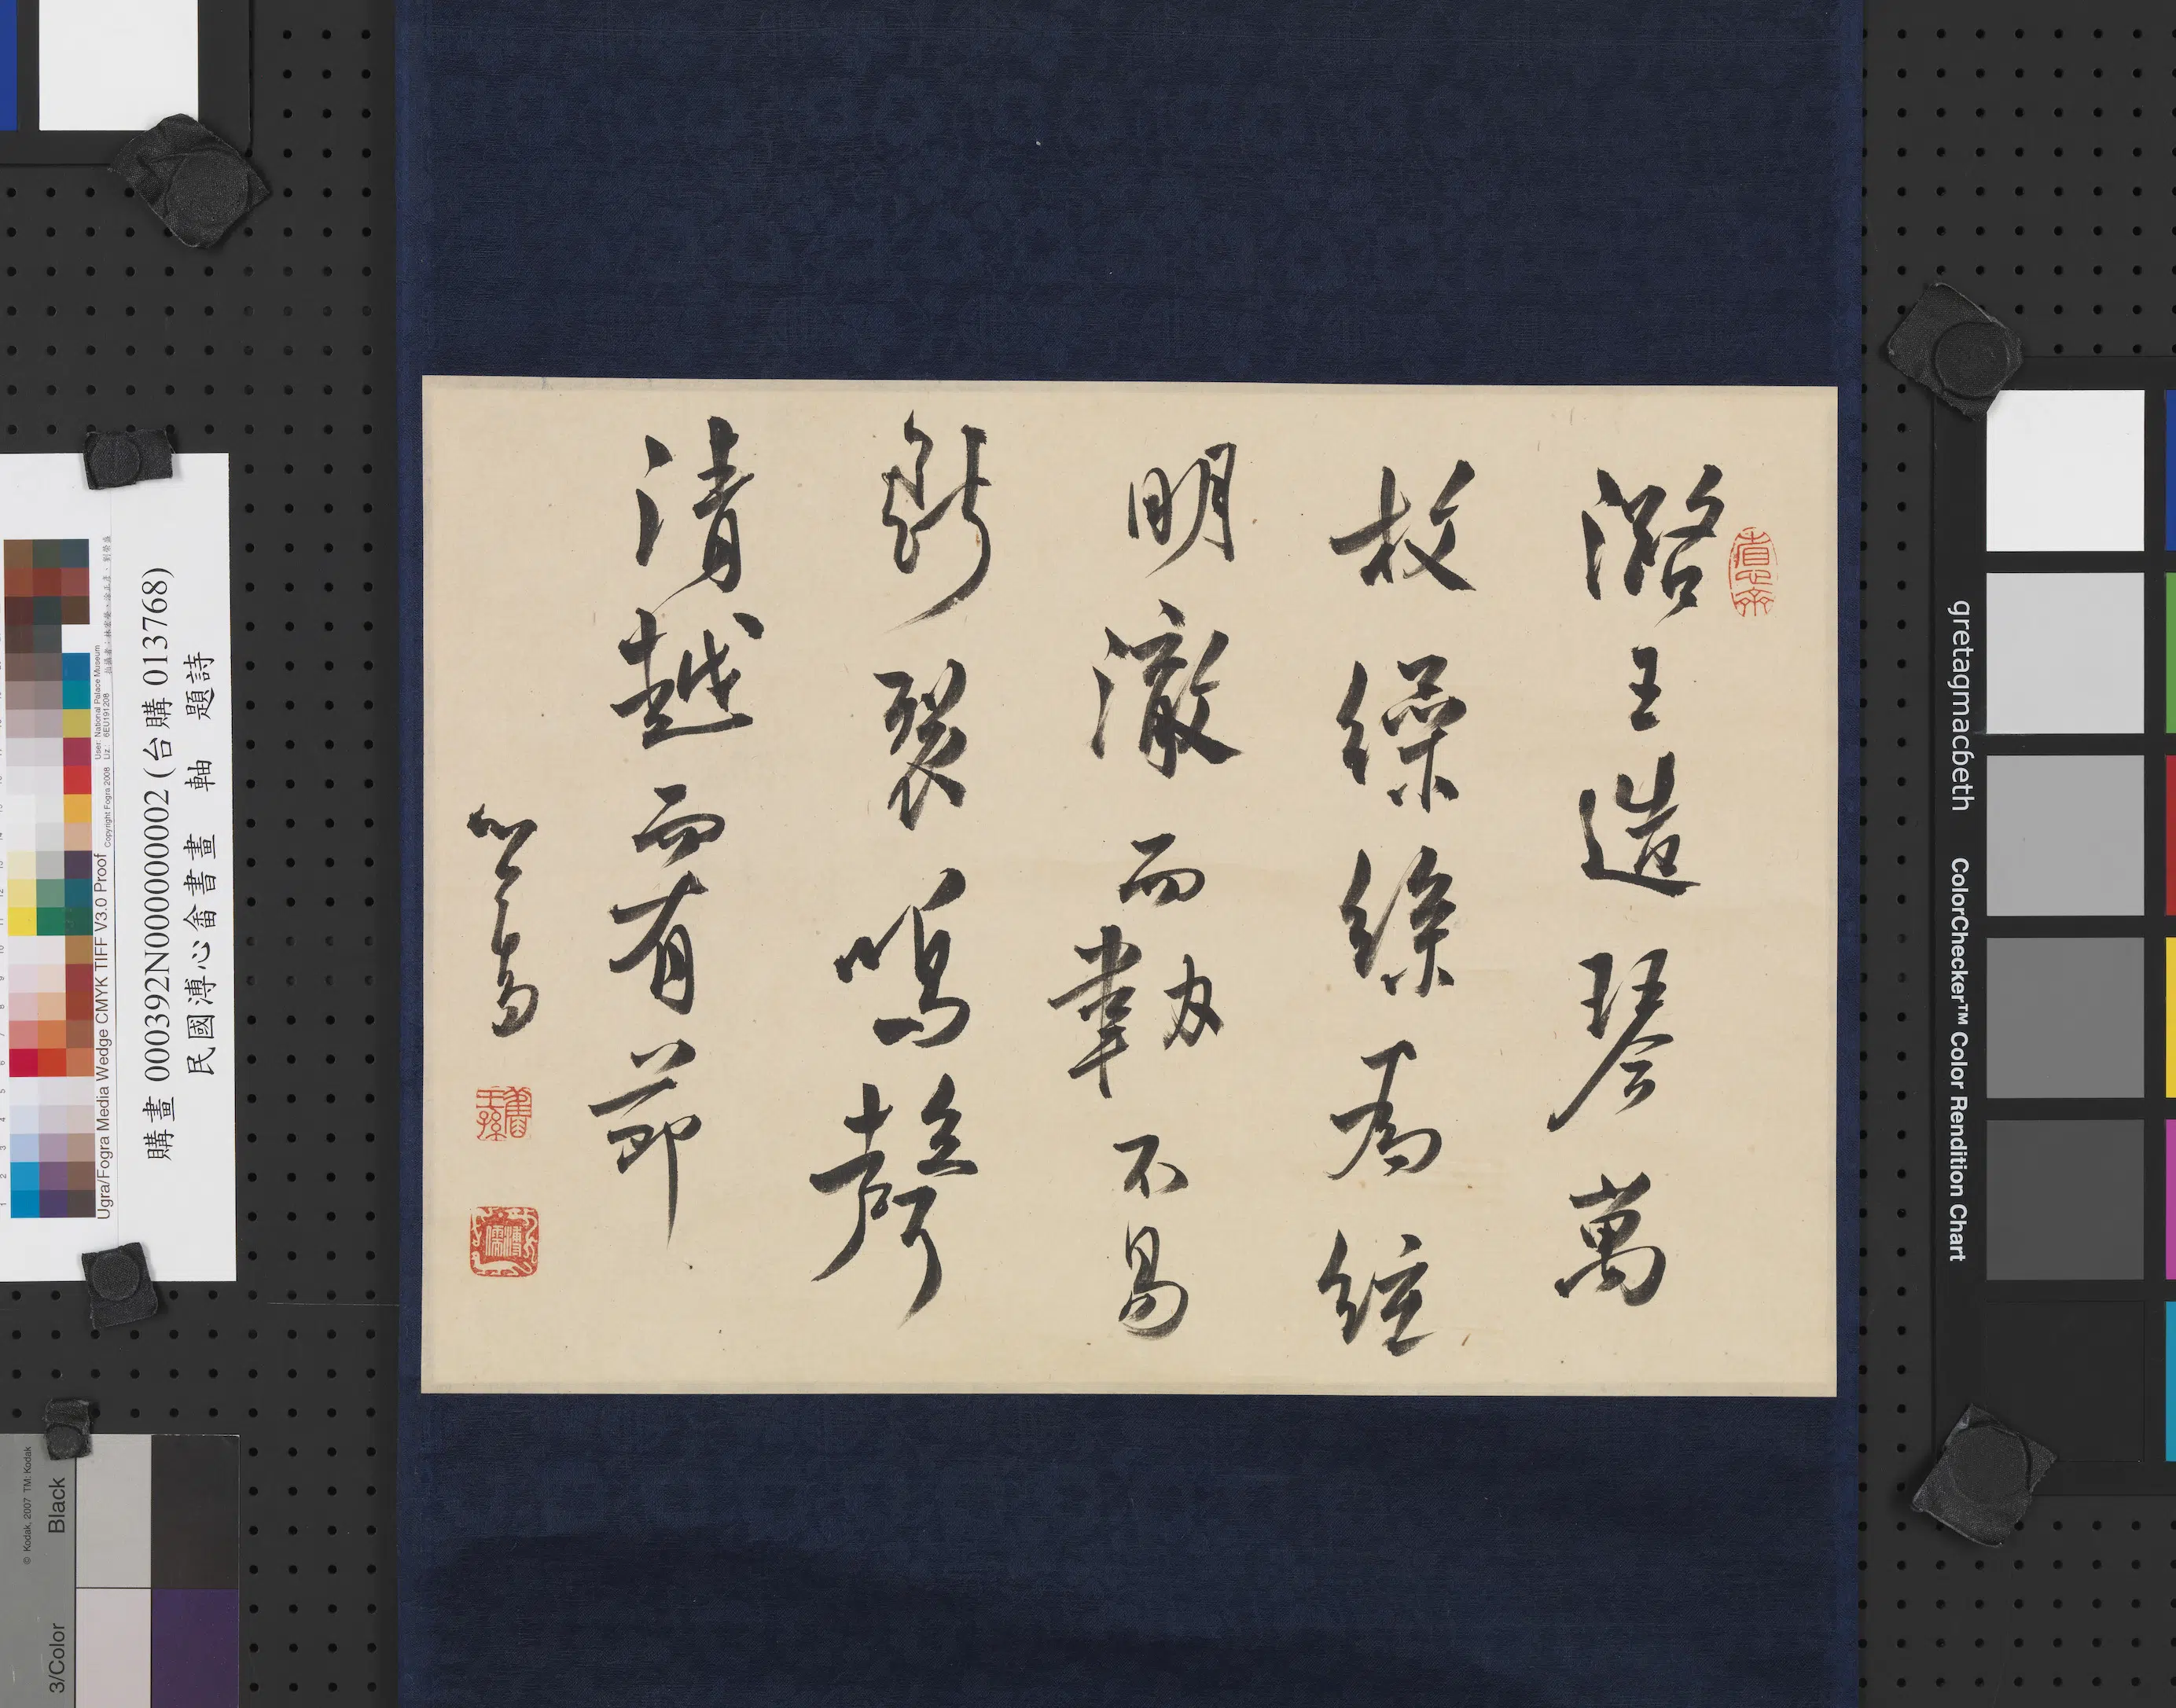 潞王造琴萬
枚繰絲為絃
明澈而韌不易
斷裂鳴聲
清越而有節
心畬
舊王孫
溥儒
購畫 000392N000000002 (台購 013768)
民國溥心畬書畫 軸 題詩
Ugra/Fogra Media Wedge CMYK TIFF V3.0 Proof
Copyright Fogra 2008
User: National Palace Museum
gretagmacbeth
ColorChecker™ Color Rendition Chart
© Kodak, 2007 TM: Kodak
Black
3/Color